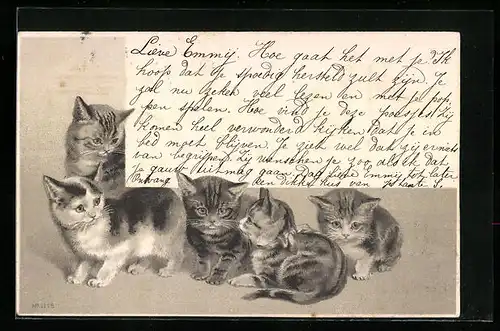 Lieve Emmij, Hoe gaat het met je? Ik
hoop dat je spoedig hersteld zult zijn. Je
zal nu zeker veel lezen en met je pop
pen spelen. Hoe vind je deze poesjes? Zij
komen heel verwonderd kijken dat je in
bed moet blijven. Je ziet wel dat zij er niets
van begrijpen. Zij wenschen je zoo als ik dat
je gauw uit mag gaan. Dag lieve Emmij tot later
Ontvang een dikke kus van je tante S.